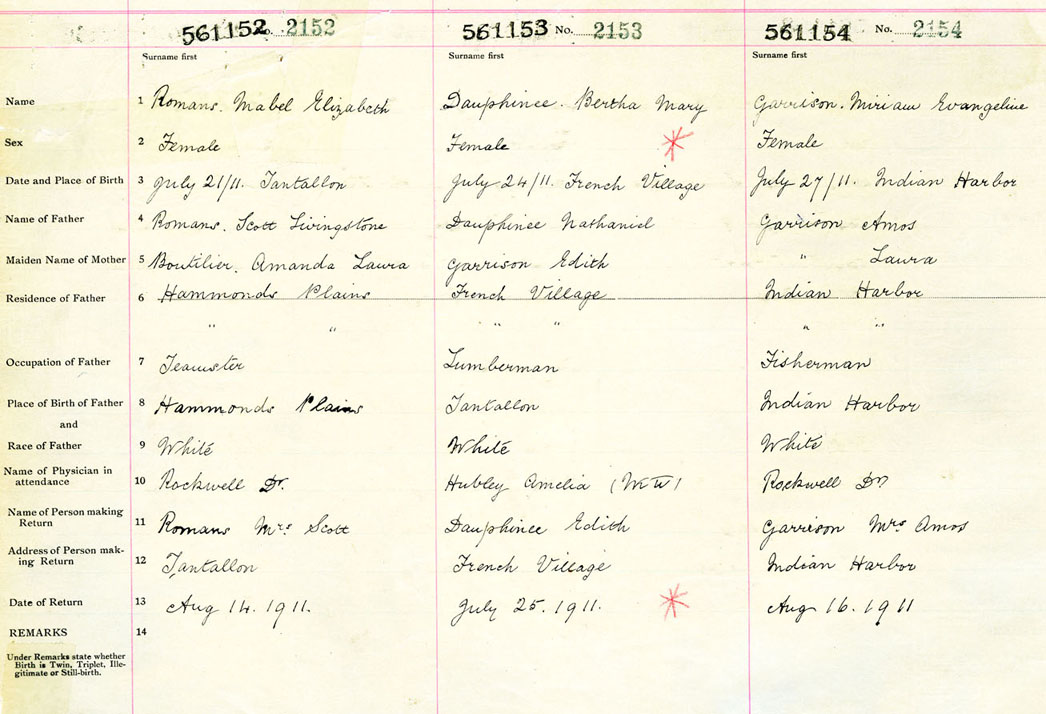 561152 No. 2152 561153 No. 2153 561154 No. 2154
Surname first Surname first Surname first
Name 1 Romans. Mabel Elizabeth Dauphinee. Bertha Mary Garrison. Miriam Evangeline
Sex 2 Female Female Female
Date and Place of Birth 3 July 21/11. Tantallon July 24/11. French Village July 27/11. Indian Harbor
Name of Father 4 Romans. Scott Livingstone Dauphinee Nathaniel Garrison Amos
Maiden Name of Mother 5 Boutilier. Amanda Laura Garrison Edith " Laura
Residence of Father 6 Hammonds Plains French Village Indian Harbor
" " " " " "
Occupation of Father 7 Teamster Lumberman Fisherman
Place of Birth of Father 8 Hammonds Plains Tantallon Indian Harbor
and
Race of Father 9 White White White
Name of Physician in
attendance 10 Rockwell Dr. Hubley Amelia (M W) Rockwell Dr
Name of Person making
Return 11 Romans Mrs Scott Dauphinee Edith Garrison Mrs Amos
Address of Person mak-
ing Return 12 Tantallon French Village Indian Harbor
Date of Return 13 Aug 14. 1911. July 25. 1911. Aug 16. 1911
REMARKS 14
Under Remarks state whether
Birth is Twin, Triplet, Ille-
gitimate or Still-birth.